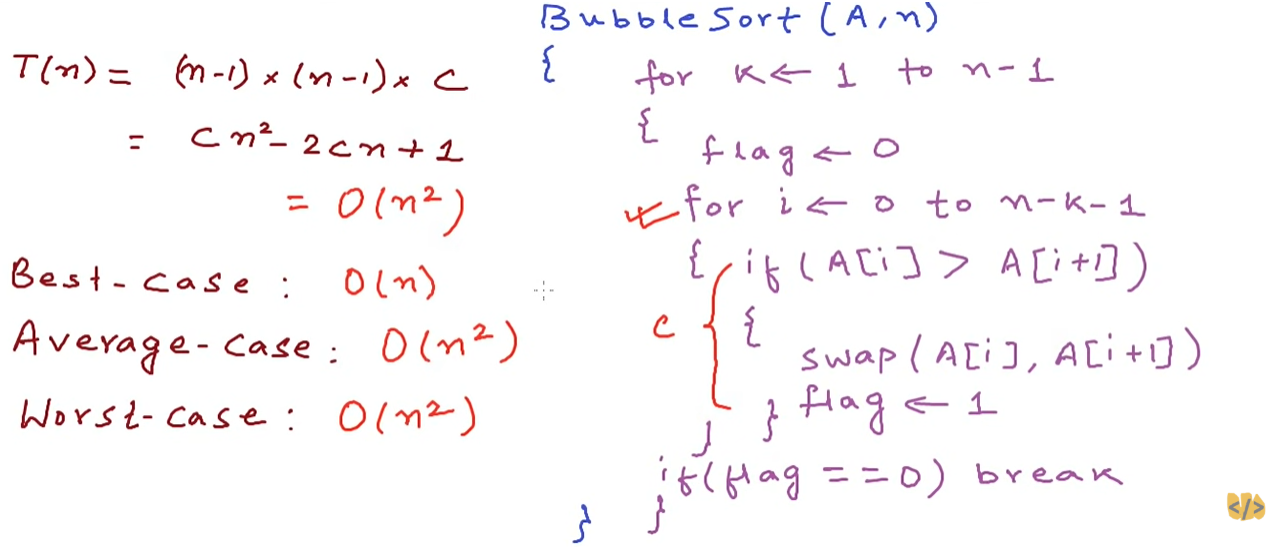 T(n) = (n-1) × (n-1) × C
= Cn² - 2cn + 1
= O(n²)
Best-case : O(n)
Average-case : O(n²)
Worst-case : O(n²)
BubbleSort (A, n)
{
for k ← 1 to n-1
{
flag ← 0
for i ← 0 to n-k-1
{ if (A[i] > A[i+1])
c {
swap (A[i], A[i+1])
} flag ← 1
}
if(flag == 0) break
}
}
</>